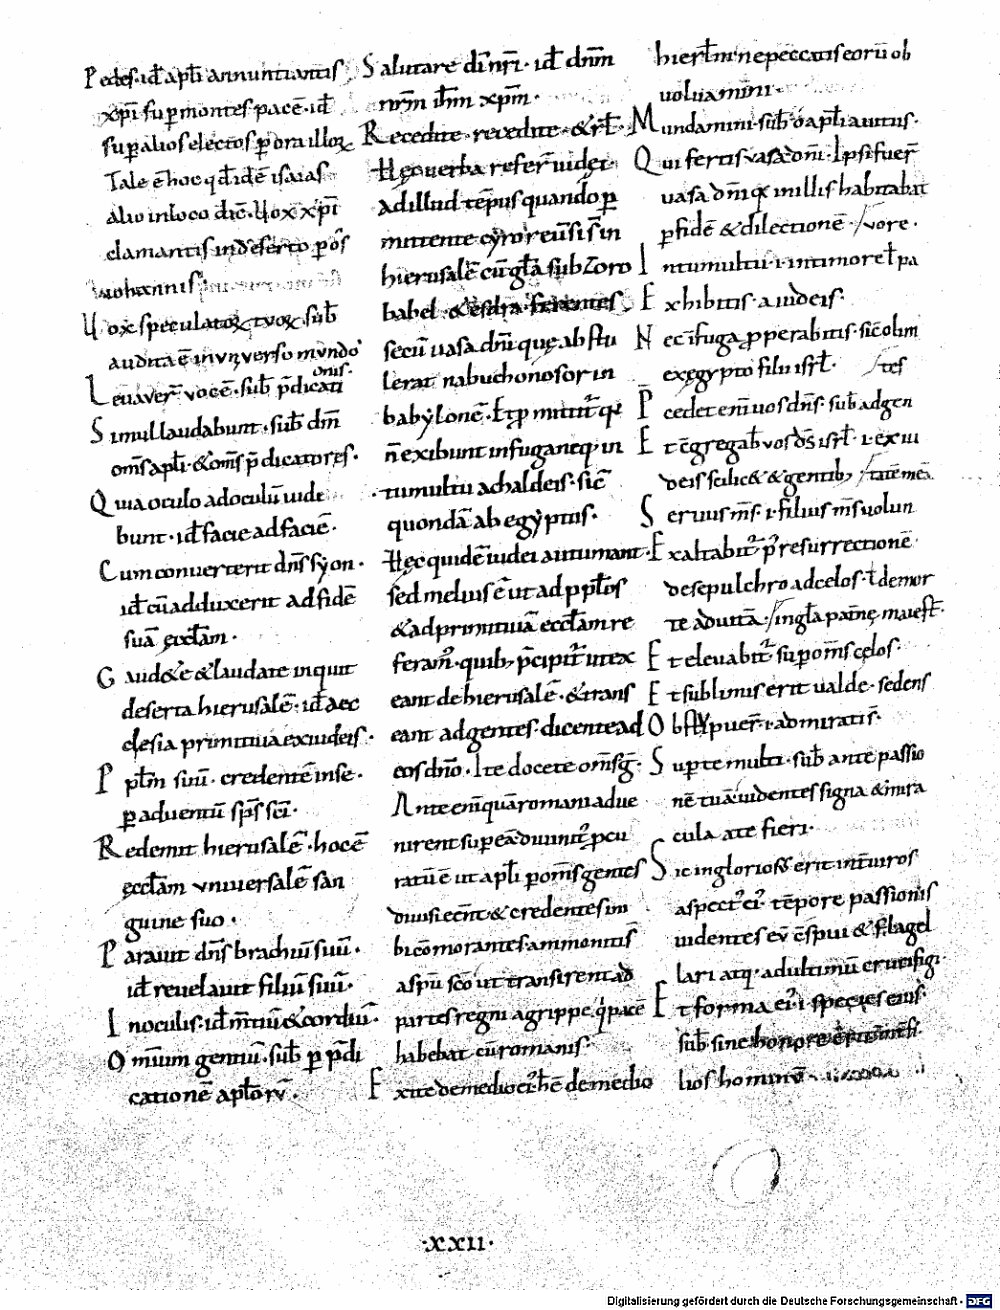 Pedes· id̄ apl̄i annuntiantis
xp̄i sup montes pacē· id̄
sup alios electos p ora illoꝝ
Tale ē hoc qd̄ idē isaias
alio in loco dic̄· Uox xp̄i
clamantis in deserto p os̄
iohannis
Uox speculatoꝝ tuoꝝ· sub̄
audita ē in vnverso mvndo
Leuaver̄ vocē· sub̄ p̄dicati
onis·
Simul laudabunt· sub̄ dm̄
oms̄ apl̄i· & oms̄ p̄dicatores·
Quia oculo ad oculū uide
bunt· id̄ facie ad faciē·
Cum conuerterit dn̄s syon·
id̄ cū adduxerit ad fidē
suā ęccl̄am·
Gaud&e & laudate inquit
deserta hierusalē· id̄ aec
clesia primitiua ex iudeis·
Ppl̄m suū· credentē in se·
p aduentū sp̄s sc̄i·
Redemit hierusalē· hoc ē
ęccl̄am vniuersalē san
guine suo·
Parauit dn̄s brachiū suū·
id̄ reuelauit filiū suū·
In oculis· id̄ m̄tiū & cordiū·
Omium gentiū· sub̄ p p̄di
cationē apl̄orv̄·
Salutare dī nr̄i· id̄ dn̄m
nrm̄ ihm̄ xpm̄·
Recedite· recedite· & rl̄·
Hęc uerba refer̄ iudei
ad illud tēpus quando p
mittente cyro reuersi s̄ in
hierusalē cū gl̄a sub zoro
babel· & esdra· ferentes
secū uasa dn̄i quę abstu
lerat nabuchonosor in
babylonē· Et p mittit̄ qa
n̄ exibunt in fuga neq· in
tumultu a chaldeis· sic̄
quondā ab egyptus·
Hęc quidē iudei autumant·
sed melius ē ut ad appl̄os
& ad primitiuā eccl̄am re
feram̄· quib; p̄cipit̄ ut ex
eant de hierusalē· & trans
eant ad gentes· dicente ad
eos dn̄o· Ite docete oms̄ ḡ·
Ante enī quā romani adue
nirent sup eā diuinit̄ pcu
ratū ē ut apl̄i p oms̄ gentes
diuisi eēnt & credentes in
bi cōmorantes ammonitis
a sp̄u sc̄o ut transirent ad
partes regni agrippę q pacē
habebat cū romanis·
Exite de medio ei· hē de medio
hierl̄m· ne peccatis eorū ob
uoluamini·
Mundamini· sub̄· o apl̄i auitus·
Qui fertis uasa dn̄i· Ipsi fuer̄
uasa dn̄i qa in illis habitabit
p fidē & dilectionē· /uore·
In tumultu· i· in timore t̄ pa
Exhibitis· a iudeis·
Nec ī fuga pperabitis· sic̄ olim
ex ęgypto filii isrl̄· /tes
Pcedet eni uos dn̄s· sub̄ ad gen
Et cgregab̄ vos ds̄ isrl̄· i· ex iu
deis scilic& & gentib; /tatē meā
Seruus ms̄· i· filius ms̄ uolun
Exaltabit̄ p resurrectionē
de sepulchro ad celos· t̄ de mor
te ad uitā· /in gl̄a patnę maiest̄·
Et eleuabit̄ sup oms̄ cęlos·
Et sublimis erit ualde· sedens
Obstvpuer̄· i· admiratis̄·
Super te multi· sub̄ ante passio
nē tuā uidentes signa & mira
cula a te fieri·
Sic inglorioss̄ erit int̄ uiros
aspect ei· tēpore passionis
uidentes ev̄ cspui & flagel
lari atq· ad ultimū crucifigi·
Et forma ei· i· species eius·
sub̄ sine honore
lios hominū
·XXII·
Digitalisierung gefördert durch die Deutsche Forschungsgemeinschaft - DFG